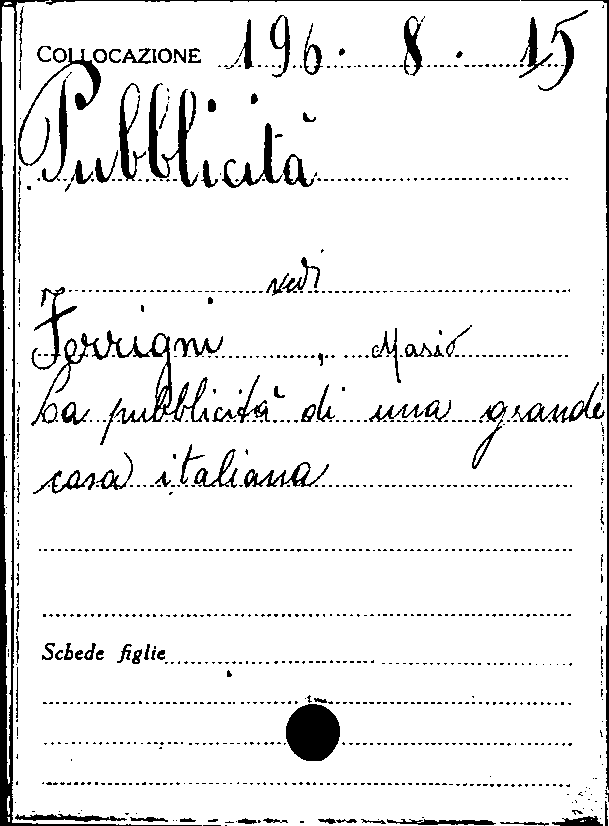 COLLOCAZIONE 196. 8. 15
Pubblicità
vedi
Ferrigni, Mario
La pubblicità di una grande
casa italiana
Schede figlie